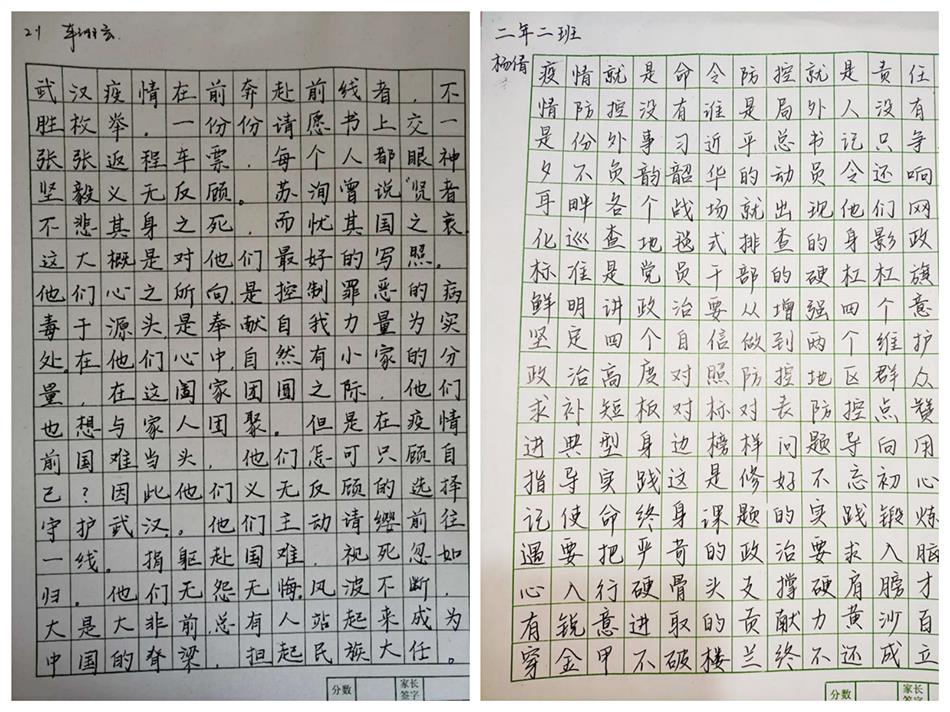 21 车
武汉疫情在前奔赴前线者，不
胜枚举。一份份请愿书上交一
张张返程车票，每个人都眼神
坚毅义无反顾。苏洵曾说“贤者
不悲其身之死，而忧其国之衰
这大概是对他们最好的写照。
他们心之所向，是控制罪恶的病
毒于源头，是奉献自我力量为实
处。在他们心中，自然有小家的分
量，在这阖家团圆之际，他们
也想与家人团聚。但是在疫情
前国难当头，他们怎可只顾自
己？因此他们义无反顾的选择
守护武汉。他们主动请缨前往
一线。捐躯赴国难，视死忽如
归。他们无怨无悔，风波不断，
大是大非前，总有人站起来成为
中国的脊梁，担起民族大任。
分数 家长签字
二年二班
杨倩
疫情就是命令防控就是责任
情防控没有谁是局外人没有
是份外事习近平总书记只争
夕不负韵韶华的动员令还响
耳畔各个战场就出现他们网
化巡查地毯式排查的身影政
标准是党员干部的硬杠杠旗
鲜明讲政治要从增强四个意
坚定四个自信做到两个维护
政治高度对照防控地区群众
求补短板对标对表防控点赞
进典型身边榜样问题导向用
指导实践这是修好不忘初心
记使命终身课题的实践锻炼
遇要把严苛的政治要求入脑
心入行硬骨头支撑硬肩膀才
有锐意进取的贡献力黄沙百
穿金甲不破楼兰终不还成立
分数 家长签字